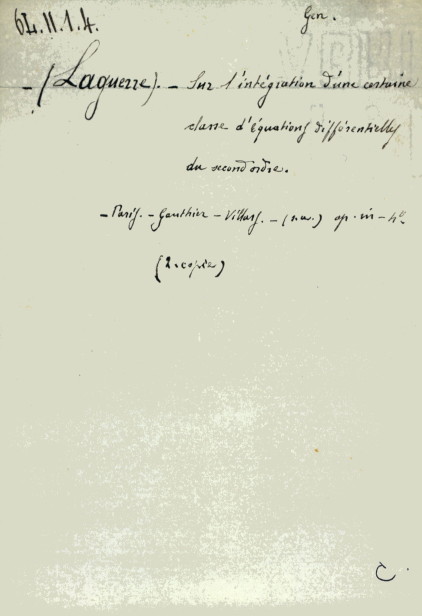 6L.11.1.4. Gen.
- (Laguerre). - Sur l'intégration d'une certaine
classe d'équations différentielles
du second ordre.
- Paris. - Gauthier - Villars. - (s.a.) op. in - 4º
(2. copie)
C